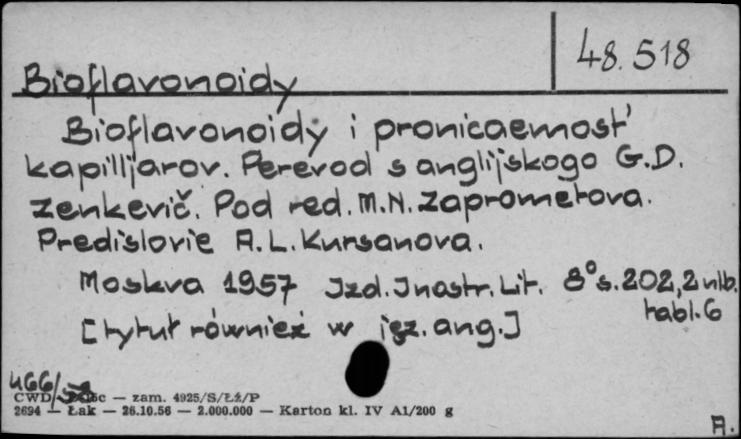 48.518
Bioflavonoidy
Bioflavonoidy i pronicaemost'
kapilljarov. Perevod s anglijskogo G.D.
Zenkevič. Pod red. M.N. Zaprometova.
Predislovie A.L. Kursanova.
Moskva 1957 Izd. Inostr. Lit. 8° s. 202, 2 nlb.
tabl. 6
[tytuł również w jęz. ang.]
466/58
CWD — zam. 4925/S/Łź/P
2694 — Łak — 26.10.56 — 2.000.000 — Karton kl. IV A1/200 g
A.